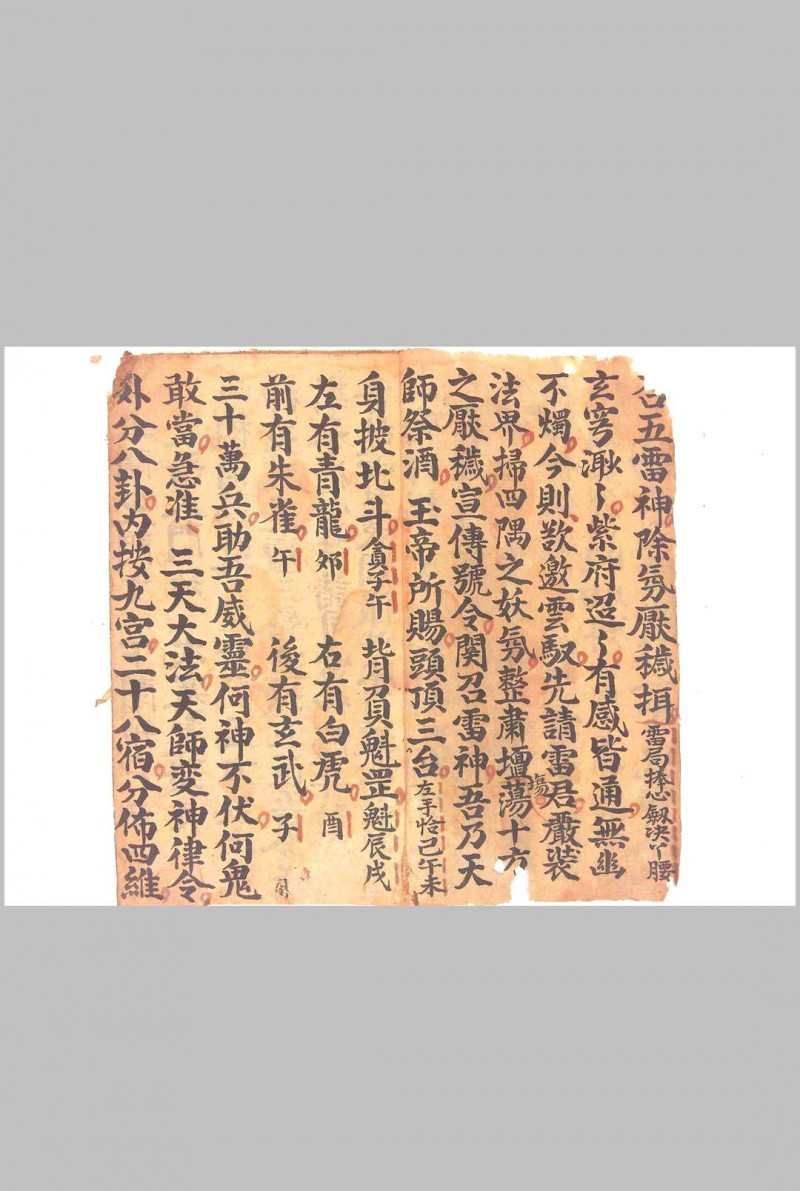 召五雷神除氛厭穢揖雷局捧心劔决丫腰
玄穹溆〻紫府迢〻有感皆通無幽
不燭今則欲邀雲馭先請雷君嚴裝
法界掃四隅之妖氛整肅壇塲蕩十方
之厭穢宣傳號令関召雷神吾乃天
師祭酒 玉帝所賜頭頂三台左手恰己午未
身披北斗貪子午 背負魁罡魁辰戌
左有青龍夘 右有白虎酉
前有朱雀午 後有玄武子
三十萬兵助吾威靈何神不伏何鬼
敢當急准 三天大法天師变神律令
外分八卦内按九宫二十八宿分佈四維